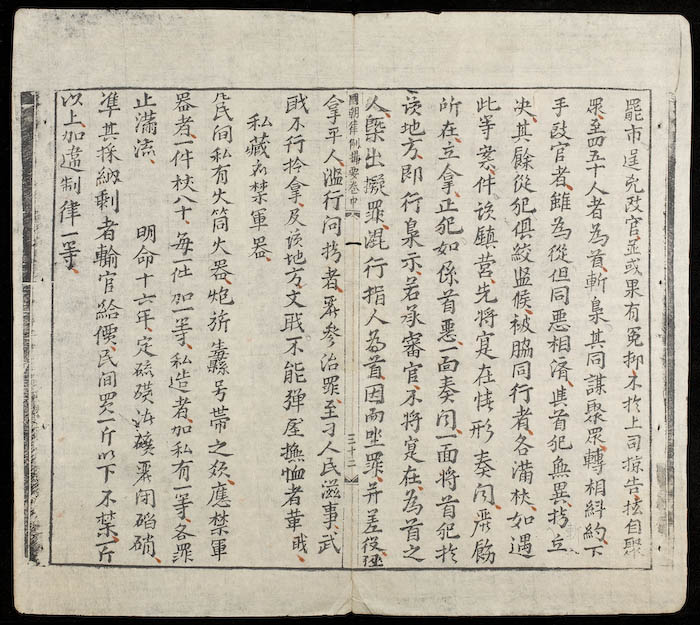 罷市逞兇毆官並或果有冤抑不於上司控告擅自聚
衆至四五十人者為首斬梟其同謀聚眾轉相糾約下
手毆官者雖為從但同惡相濟其首犯無異拷立
决其餘從犯俱絞监候被脇同行者各滿杖如遇
此等案件該鎮营先將寔在情形奏闻嚴飭
所在立拿正犯如係首惡一面奏闻一面將首犯於
該地方即行梟示若承審官不將寔在為首之
人槩出擬罪混行指人為首因而坐罪并差役
國朝律例撮要卷中
一
三十二
拿平人濫行问拷者嚴參治罪至刁人民滋事武
戝不行拎拿及該地方文戝不能彈壓撫恤者革戝
私藏應禁軍器
凡民间私有火筒火器炮旂纛号带之類應禁軍
器者一件杖八十每一件加一等私造者加私有一等各罪
止滿流 明命十六年定硫磺
準其採納剩者輸官給價民间買一斤以下不禁一斤
以上加違制律一等